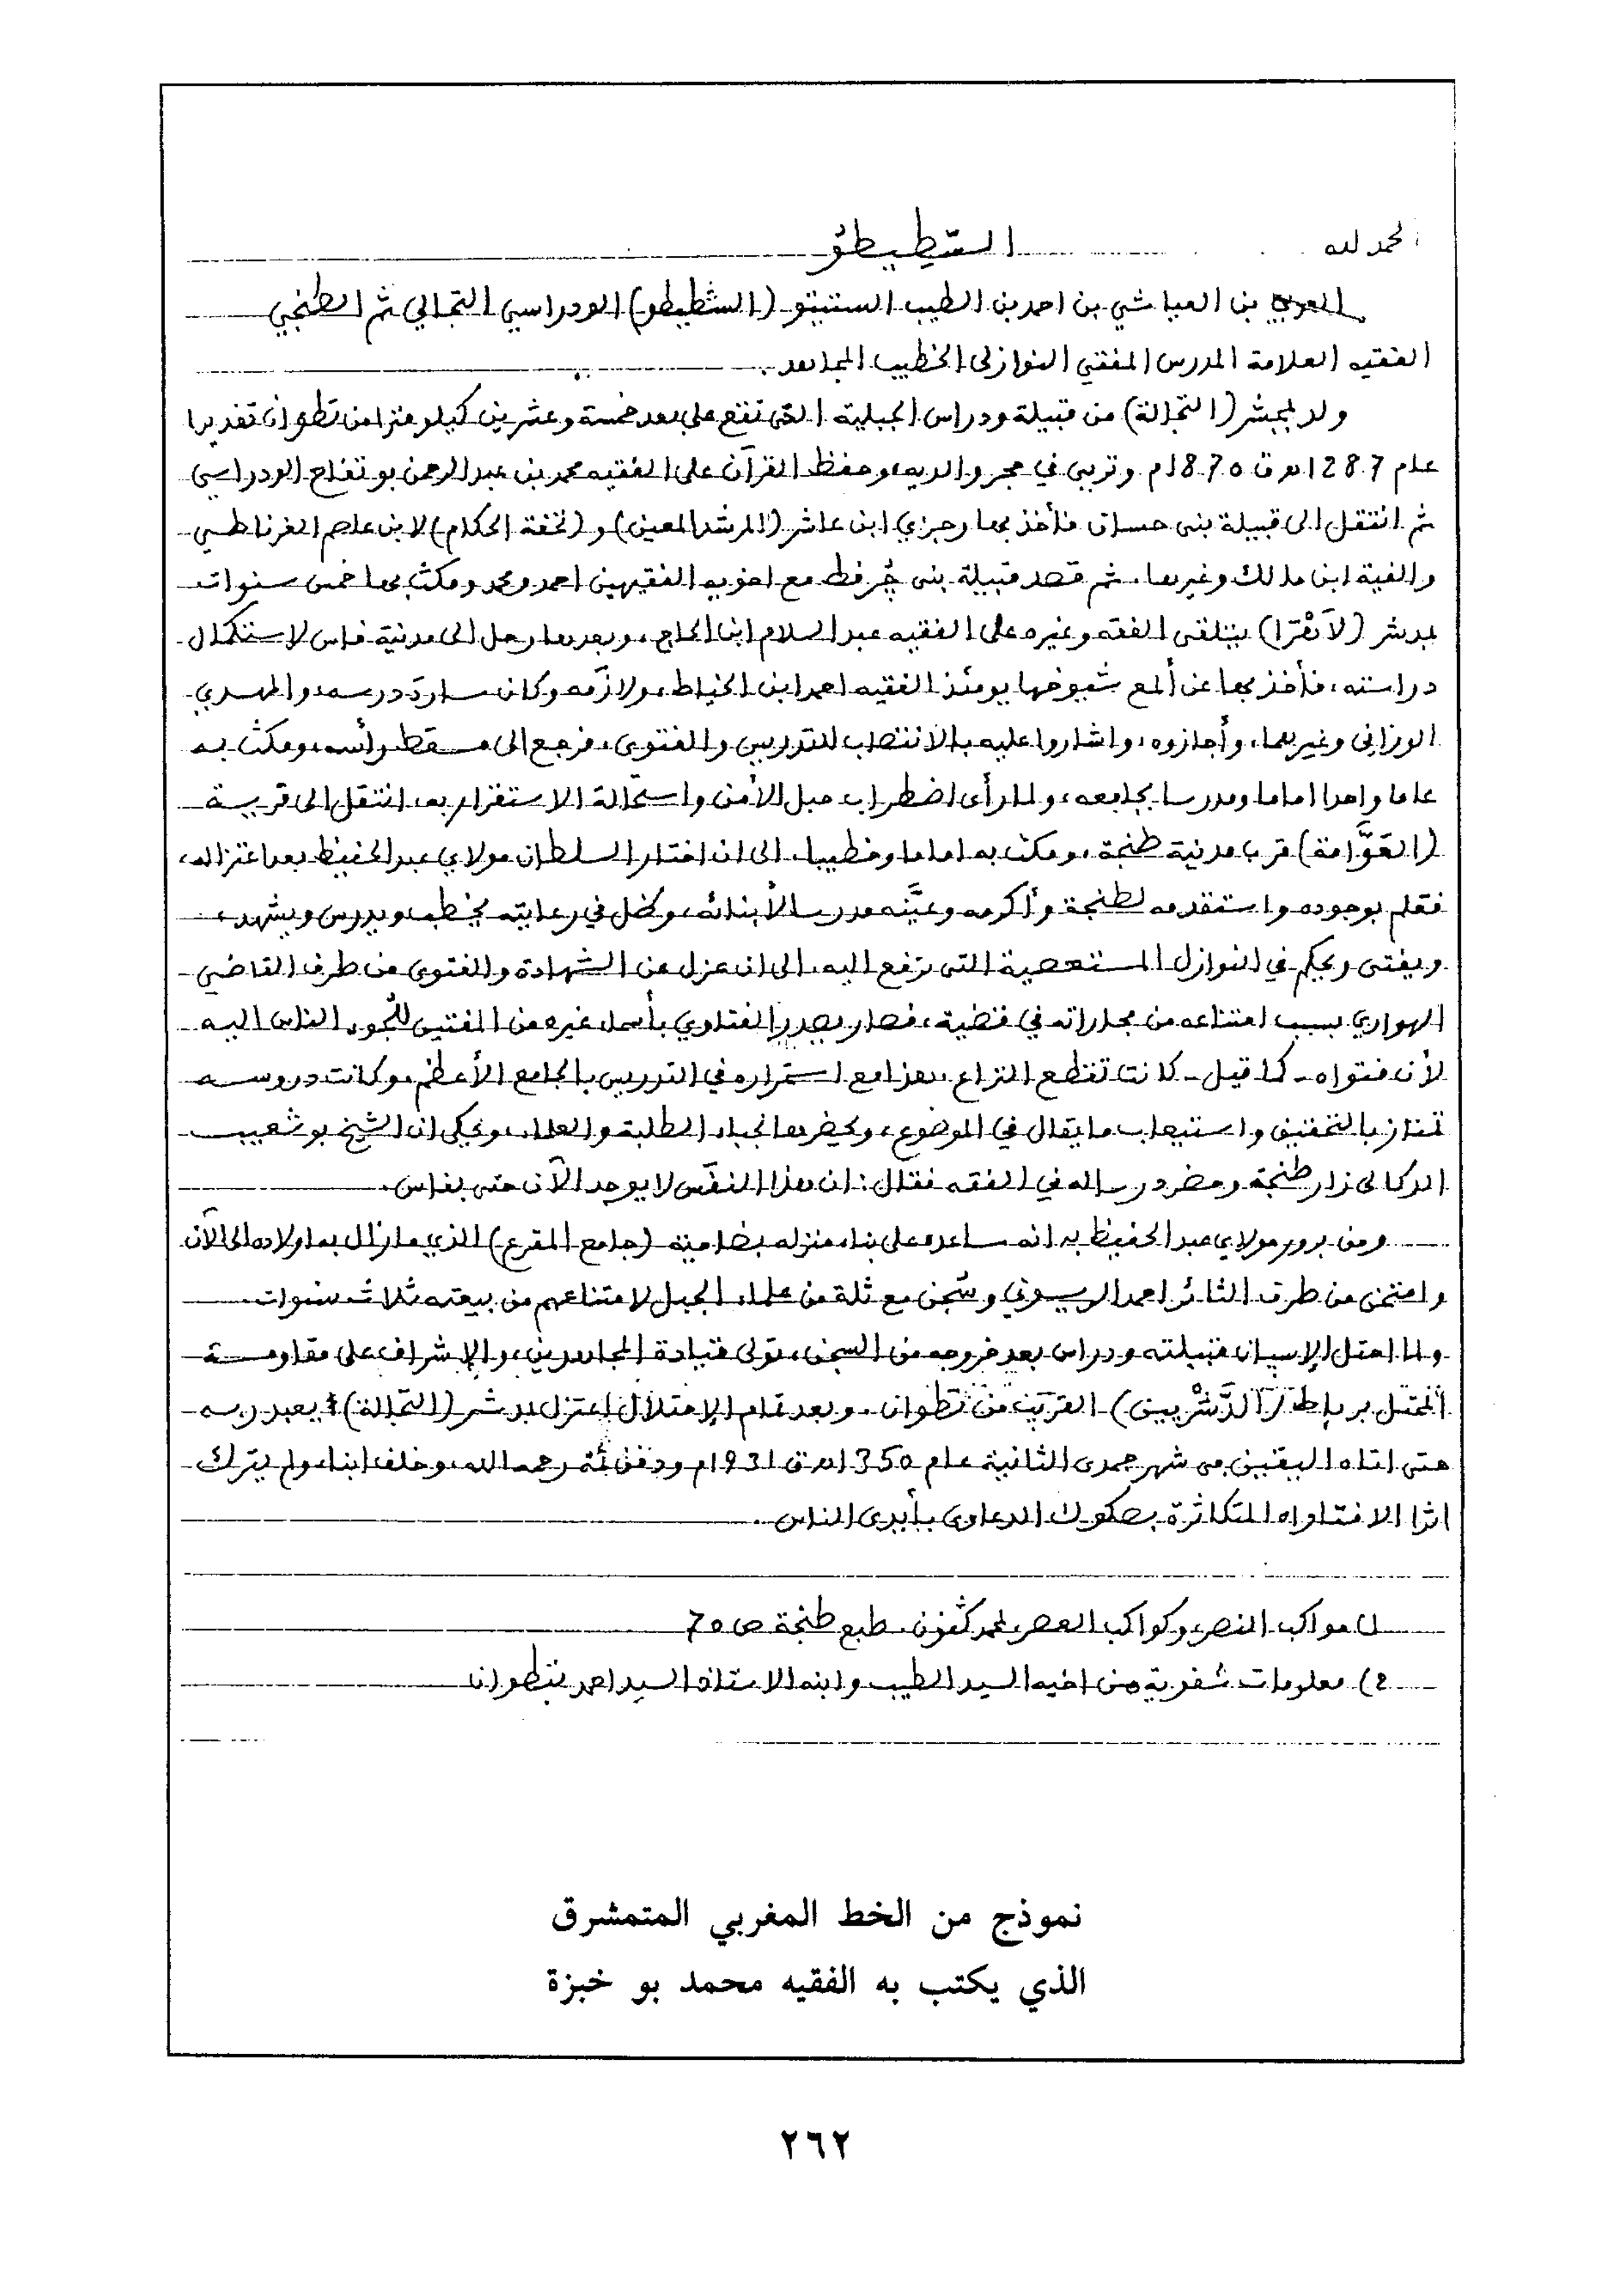 الحمد لله
الشّطِيطُو
العربي بن العياشي بن احمد بن الطيب الستيتو (الشْطيطو) الودراسي التجالي ثم الطنجي
الفقيه العلامة المدرس المفتي النوازلى الخطيب المجاهد.
ولد بمدشر (التجالة) من قبيلة ودراس الجبلية التى تقع على بعد خمسة وعشرين كيلو مترا من تطوان تقديرا
عام 1287هـ ق 1870م وتربى في حجر والديه، وحفظ القرآن على الفقيه محمد بن عبد الرحمن بو تفاح الودراسي
ثم انتقل الى قبيلة بنى حسان فأخذ بها رجزي ابن عاشر (المرشد المعين) و (تحفة الحكام) لابن عاصم الغرناطي
والفية ابن مالك وغيرها. ثم قصد قبيلة بنى جُرفط مع اخويه الفقيهين احمد ومحمد ومكث بها خمس سنوات
بمدشر يتلقى الفقه وغيره على الفقيه عبد السلام ابن الحاج، وبعدها رحل الى مدينة فاس لاستكمال
دراسته، فأخذ بها عن ألمع شيوخها يومئذ الفقيه احمد ابن الخياط، ولازمه وكان سارد درسه، والمهدي
الوزانى وغيرهما، وأجازوه، واشاروا عليه بالانتصاب للتدريس والفتوى، فرجع الى مسقط رأسه، ومكث به
عاما واحدا اماما ومدرسا بجامعه، ولما رأى اضطراب حبل الأمن واستحالة الاستقرار به، انتقل الى قرية
(العَوَّامة) قرب مدينة طنجة، ومكث به اماما وخطيبا، الى ان اختار السلطان مولاي عبد الحفيظ بعد اعتزاله،
فعلم بوجوده واستقدمه لطنجة وأكرمه وعيَّنه مدرسا لأبنائه، وظل في رعايته يخطب ويدرس ويشهد،
ويفتى ويحكم في النوازل المستعصية التى ترفع اليه، الى ان عزل عن الشهادة والفتوى من طرف القاضي
الهواري بسبب امتناعه من مجاراته في قضية، فصار يصدر الفتاوي بأسماء غيره من المفتين للُجوء الناس اليه
لأن فتواه - كما قيل - كانت تقطع النزاع، هذا مع استمراره في التدريس بالجامع الأعظم، وكانت دروسه
تمتاز بالتحقيق واستيعاب ما يقال في الموضوع، ويحضرها نجباء الطلبة والعلماء، ويحكى ان الشيخ بو شعيب
الدكالى زار طنجة وحضر درسا له في الفقه فقال: ان هذا النفَس لا يوجد الآن حتى بفاس.
ومن برور مولاي عبد الحفيظ به انه ساعده على بناء منزله بضاحية (جامع المقرع) الذي مازال به اولاده الى الآن
وامتحن من طرف الثائر احمد الريسوني وسُجن مع ثلة من علماء الجبل لامتناعهم من بيعته ثلاث سنوات.
ولما احتل الإسبان قبيلته ودراس بعد خروجه من السجن، تولى قيادة المجاهدين، والإشراف على مقاومة
المحتل القريب من تطوان. وبعد تمام الإحتلال اعتزل بمدشر (التجالة) يعبد ربه
حتى اتاه اليقين في شهر جمدى الثانية عام 1350هـ ق 1931م ودفن ثمة رحمه الله، وخلف ابناء ولم يترك
اثرا الا فتاواه المتكاثرة بصكوك الدعاوى بأيدى الناس.
1) مواكب النصر، وكواكب العصر، لمحمد كَنون. طبع طنجة ص 70
2) معلومات شفوية من اخيه السيد الطيب وابنه الاستاذ السيد احمد بتطوان
نموذج من الخط المغربي المتمشرق
الذي يكتب به الفقيه محمد بو خبزة
٢٦٢